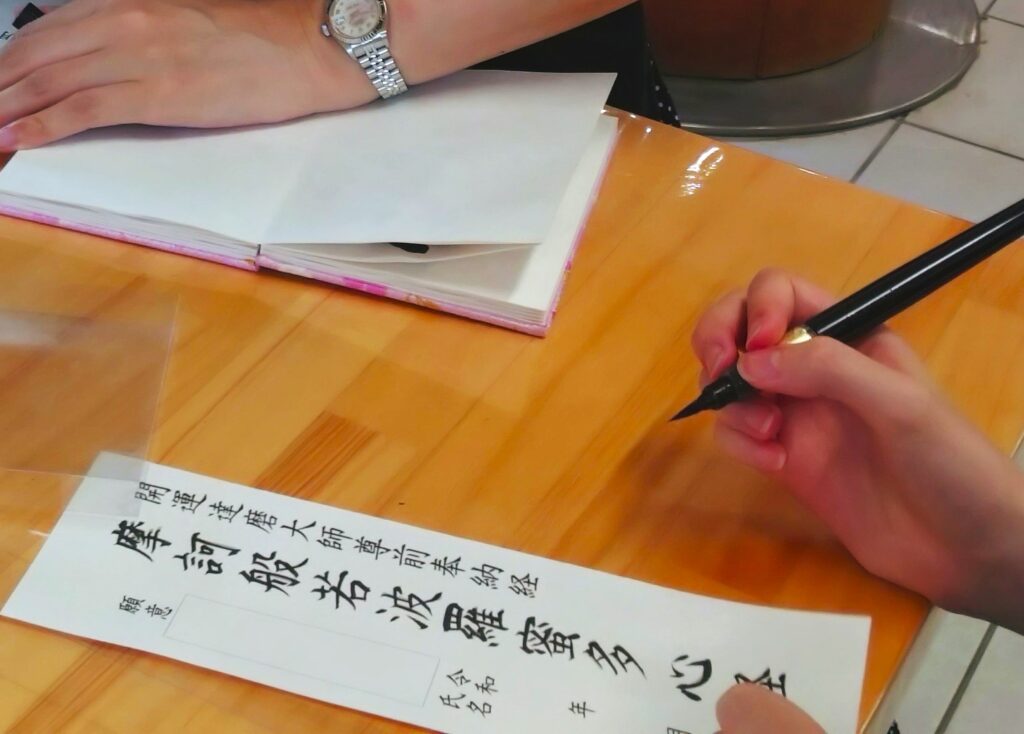 開運達磨大師尊前奉納経
摩訶般若波羅蜜多心経
願意
令和 年 月
氏名